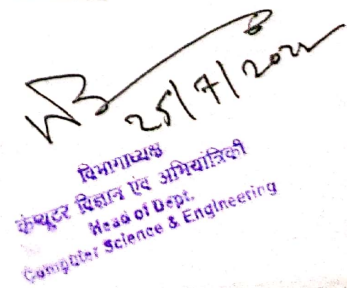 25/7/2022
विभागाध्यक्ष
कंप्यूटर विज्ञान एंव अभियांत्रिकी
Head of Dept.
Computer Science & Engineering